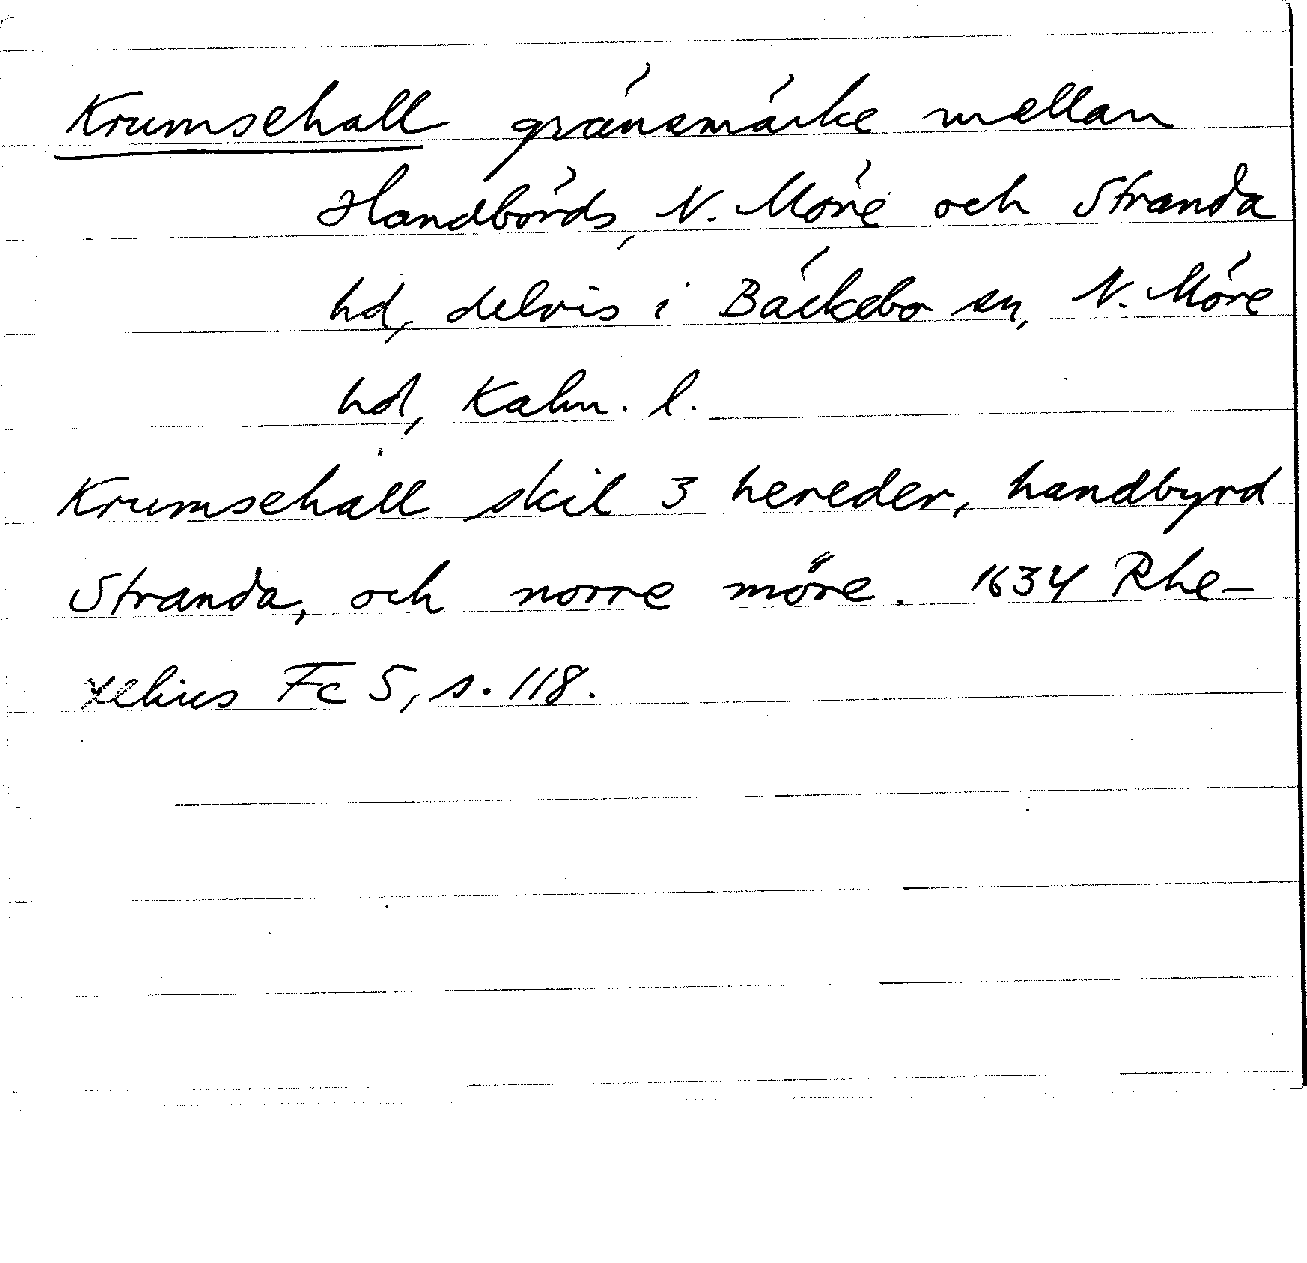 Krumsehall gränsmärke mellan
Handbörds, N. Möre och Stranda
hd, delvis i Bäckebo sn, N. Möre
hd, Kalm. l.
Krumsehall skil 3 hereder, handbyrd
Stranda, och norre möre. 1634 Rhe-
xelius Fc 5, s. 118.